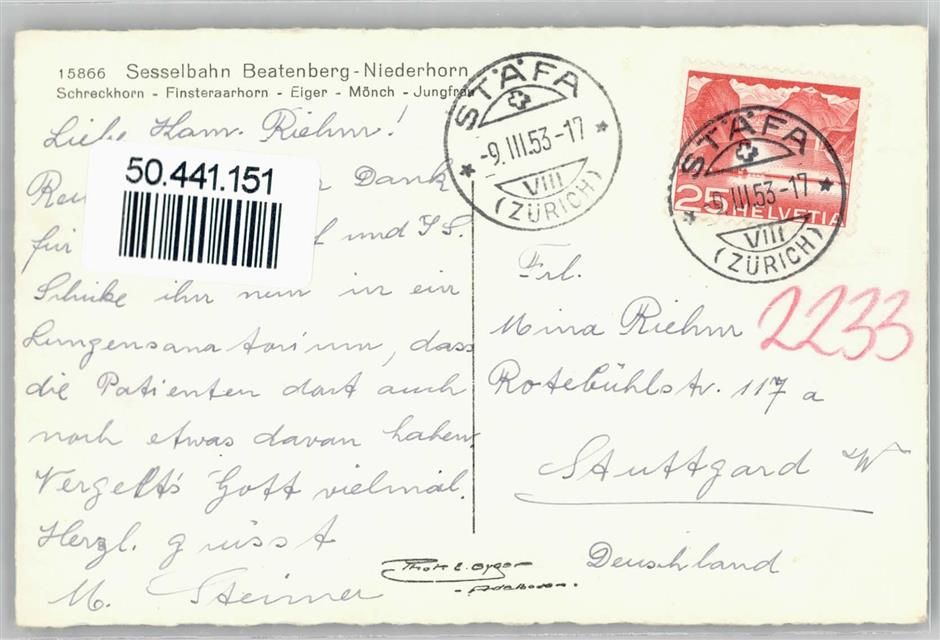 15866 Sesselbahn Beatenberg-Niederhorn
Schreckhorn - Finsteraarhorn - Eiger - Mönch - Jungfrau
Liebe Fam. Riehm!
50.441.151
Dank
für und
Schicke ihn nun in ein
Lungensanatorium, dass
die Patienten dort auch
noch etwas davon haben.
Vergelt's Gott vielmal.
Herzl. grüsst
M. Steiner
STÄFA
-9.III.53-17
VIII
(ZÜRICH)
STÄFA
-9.III.53-17
VIII
(ZÜRICH)
25 HELVETIA
Frl.
Mina Riehm
2233
Rotebühlstr. 117 a
Stuttgard W
Deuschland
Phot. E. Gyger
- Adelboden.